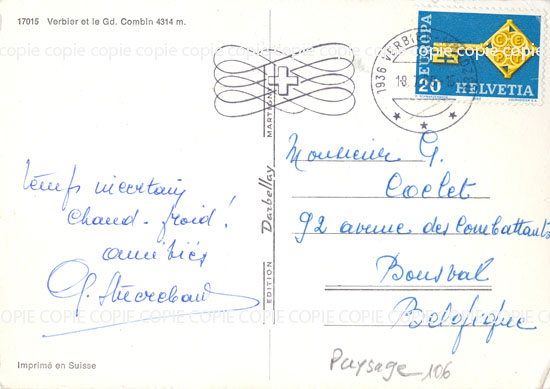 17015 Verbier et le Gd. Combin 4314 m.
1936 VERBIER
18.
EUROPA
20 HELVETIA
temps incertain
chaud - froid!
amitiés
G.
Imprimé en Suisse
EDITION Darbellay MARTIGNY
Monsieur G.
Coclet
92 avenue des Combattants
Bousval
Belgique
Paysage 106
COPIE COPIE COPIE COPIE COPIE COPIE COPIE COPIE COPIE